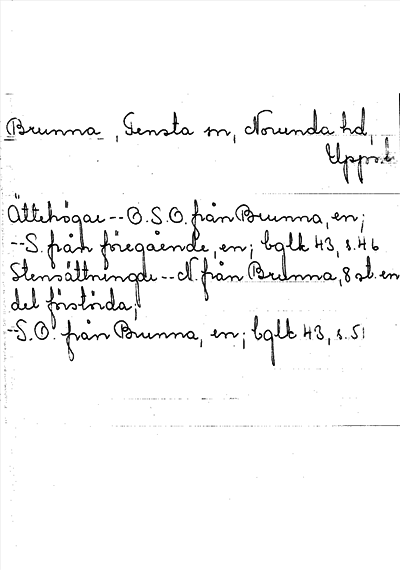 Brunna, Tensta sn, Norunda hd,
Upps.l.
Ättehögar -- O.S.O. från Brunna, en;
--S. från föregående, en; bglk 43, s.46
Stensättningar -- N. från Brunna, 8 st. en
del förstörda;
--S.O. från Brunna, en; bglk 43, s.51